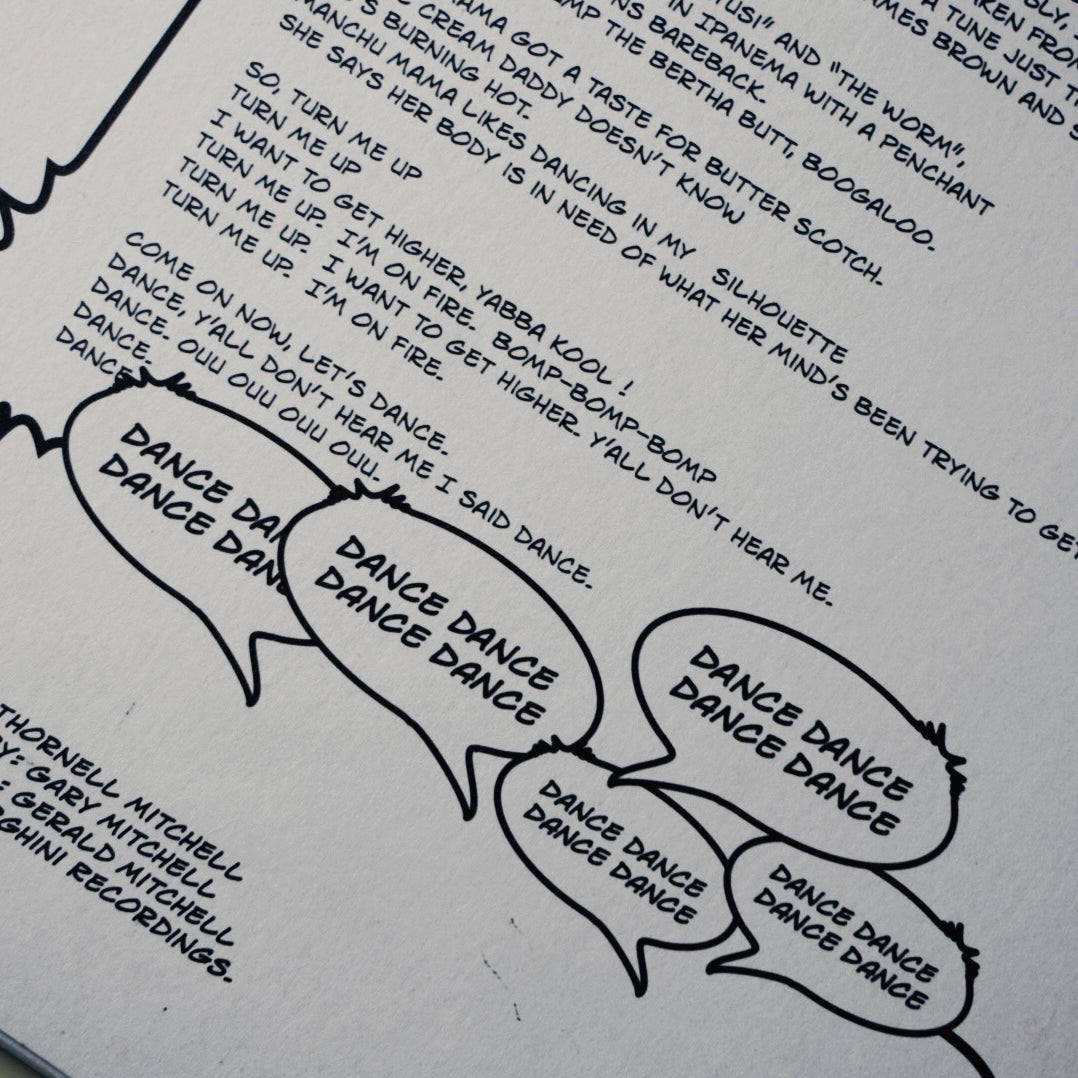 FROM
A TUNE JUST
JAMES BROWN AND
AND "THE WORM",
IN IPANEMA WITH A PENCHANT
BAREBACK.
THE BERTHA BUTT, BOOGALOO.
MAMA GOT A TASTE FOR BUTTER SCOTCH.
CREAM DADDY DOESN'T KNOW
BURNING HOT.
MANCHU MAMA LIKES DANCING IN MY SILHOUETTE
SHE SAYS HER BODY IS IN NEED OF WHAT HER MIND'S BEEN TRYING TO GET
SO, TURN ME UP
TURN ME UP
I WANT TO GET HIGHER, YABBA KOOL !
TURN ME UP. I'M ON FIRE. BOMP-BOMP-BOMP
TURN ME UP. I WANT TO GET HIGHER. Y'ALL DON'T HEAR ME.
TURN ME UP. I'M ON FIRE.
COME ON NOW, LET'S DANCE.
DANCE, Y'ALL DON'T HEAR ME I SAID DANCE.
DANCE. OUU OUU OUU OUU OUU.
DANCE.
DANCE.
DANCE
DANCE
DANCE DANCE
DANCE DANCE
DANCE DANCE
DANCE DANCE
DANCE DANCE
DANCE DANCE
DANCE DANCE
DANCE DANCE
THORNELL MITCHELL
: GARY MITCHELL
: GERALD MITCHELL
RECORDINGS.